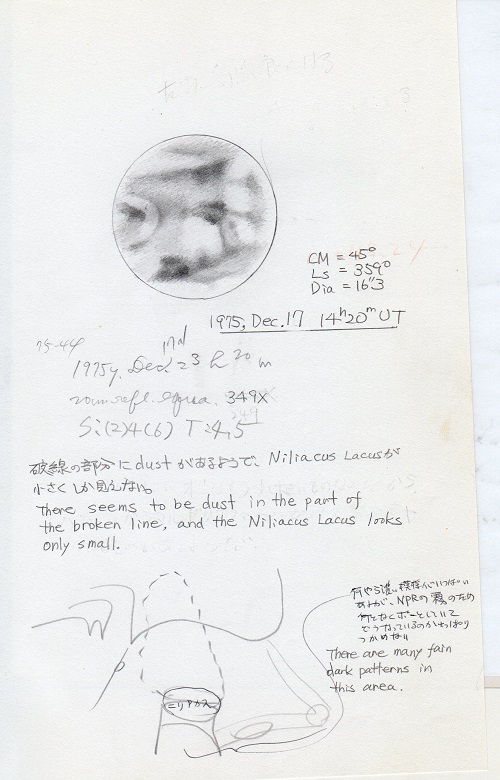 CM = 45°
Ls = 359°
Dia = 16"3
1975, Dec. 17 14h20m UT
75-44
1975y. Dec. 23h 20m
20cm refl. 349X
S:(2)4(6) T:4,5
破線の部分にdustがあるようで、Niliacus Lacusが
小さくしか見えない。
There seems to be dust in the part of
the broken line, and the Niliacus Lacus looks
only small.
何やら濃い模様がいっぱい
あるが、NPRの霧のため
何となくボーとしていて
どうなっているのかさっぱり
つかめない
There are many fain
dark patterns in
this area.
ニリアカス